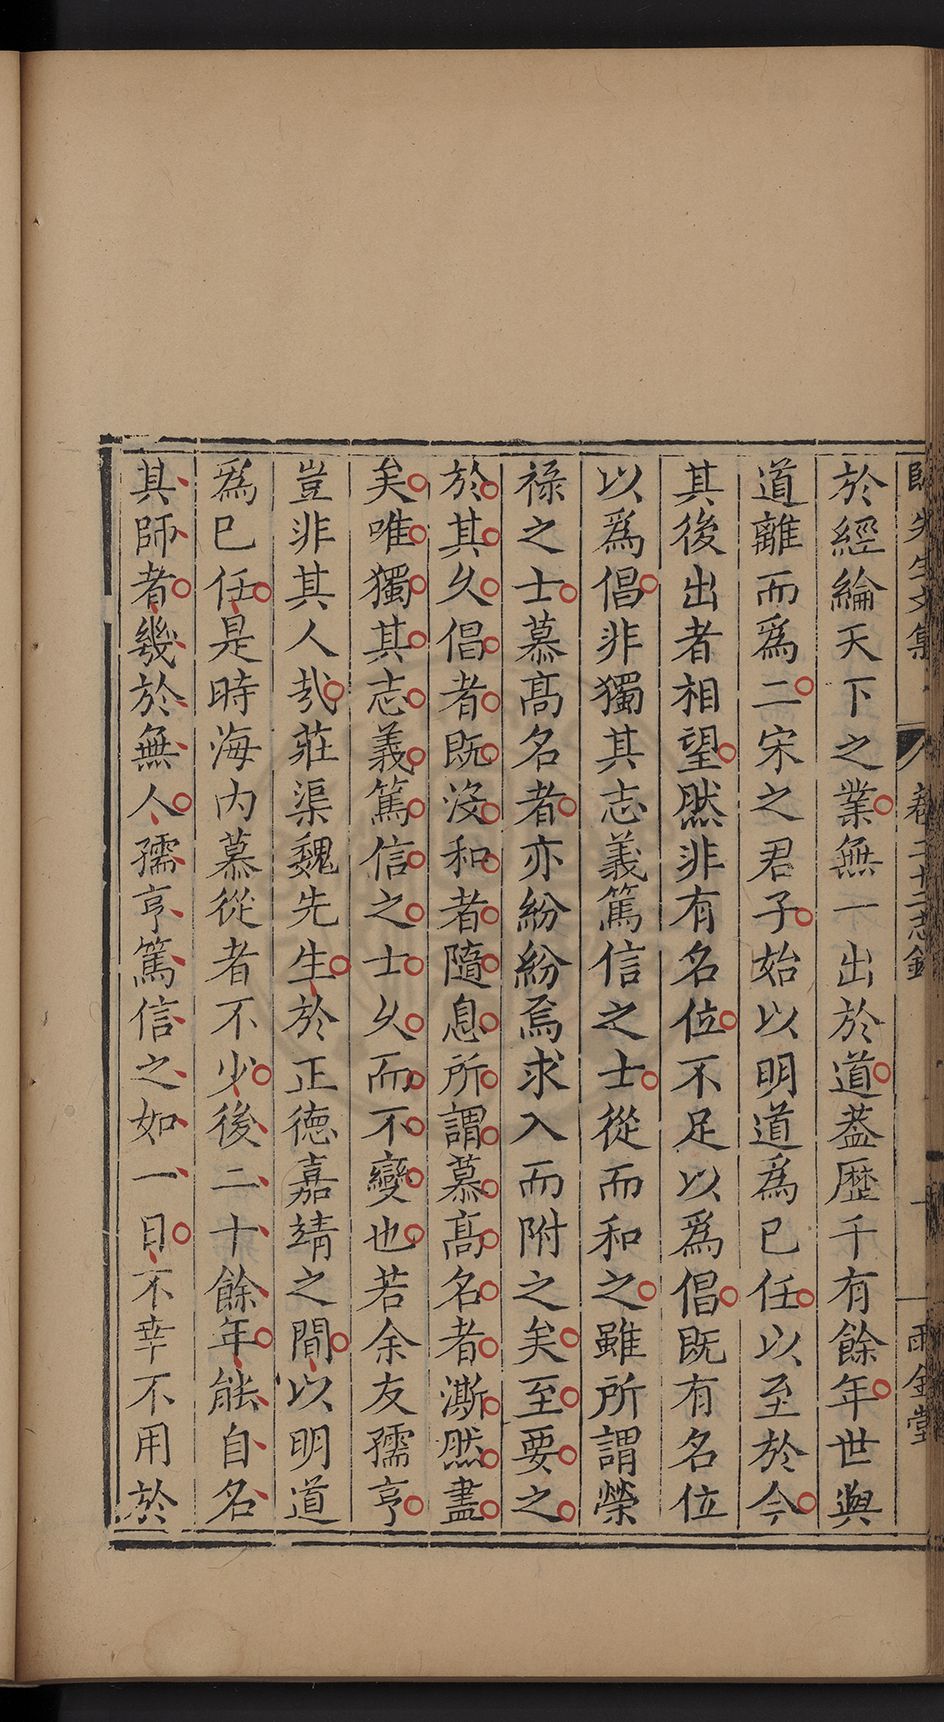 先生文集 卷二十二志銘 十 雨金堂
於經綸天下之業無一出於道蓋歷千有餘年世與
道離而爲二宋之君子始以明道爲已任以至於今
其後出者相望然非有名位不足以爲倡既有名位
以爲倡非獨其志義篤信之士從而和之雖所謂榮
祿之士慕髙名者亦紛紛焉求入而附之矣至要之
於其久倡者既沒和者隨息所謂慕髙名者澌然盡
矣唯獨其志義篤信之士久而不變也若余友孺亨
豈非其人哉莊渠魏先生於正德嘉靖之間以明道
爲已任是時海内慕從者不少後二十餘年能自名
其師者幾於無人孺亨篤信之如一日不幸不用於